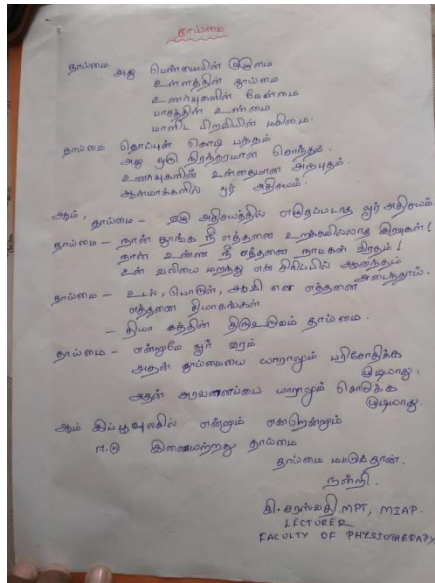 தாய்மை
தாய்மை அது பெண்மையின் குணம்
உள்ளத்தின் தூய்மை
உணர்வுகளின் மேன்மை
பாசத்தின் உண்மை
மானிட பிறவியின் மகிமை.
தாய்மை தொப்புள் கொடி பந்தம்
அது ஒரு நிரந்தரமான சொந்தம்.
உணர்வுகளின் உன்னதமான அற்புதம்.
ஆன்மாக்களில் ஓர் அதிசயம்.
ஆம், தாய்மை - ஒரு அதிசயத்தில் ஓர் அதிசயம்
தாய்மை - நான் தூங்க நீ எத்தனை உறக்கமில்லாத இரவுகள்!
நான் உண்ண நீ எத்தனை நாட்கள் விரதம்!
உன் வலியை மறந்து என் சிரிப்பில் ஆனந்தம்
அடைந்தாய்.
தாய்மை - உடல், பொருள், ஆவி என எத்தனை
எத்தனை தியாகங்கள்
- தியாகத்தின் திருஉருவம் தாய்மை.
தாய்மை - என்றுமே ஓர் வரம்
அதன் தூய்மையை யாராலும் பரிசோதிக்க
முடியாது.
அதன் அரவணைப்பை யாராலும் கொடுக்க
முடியாது.
ஆம் இப்பூவுலகில் என்றும் என்றென்றும்
ஈடு இணையற்றது தாய்மை
தாய்மை மட்டும்தான்.
நன்றி.
கி. சரஸ்வதி MPT, MIAP.
LECTURER
FACULTY OF PHYSIOTHERAPY